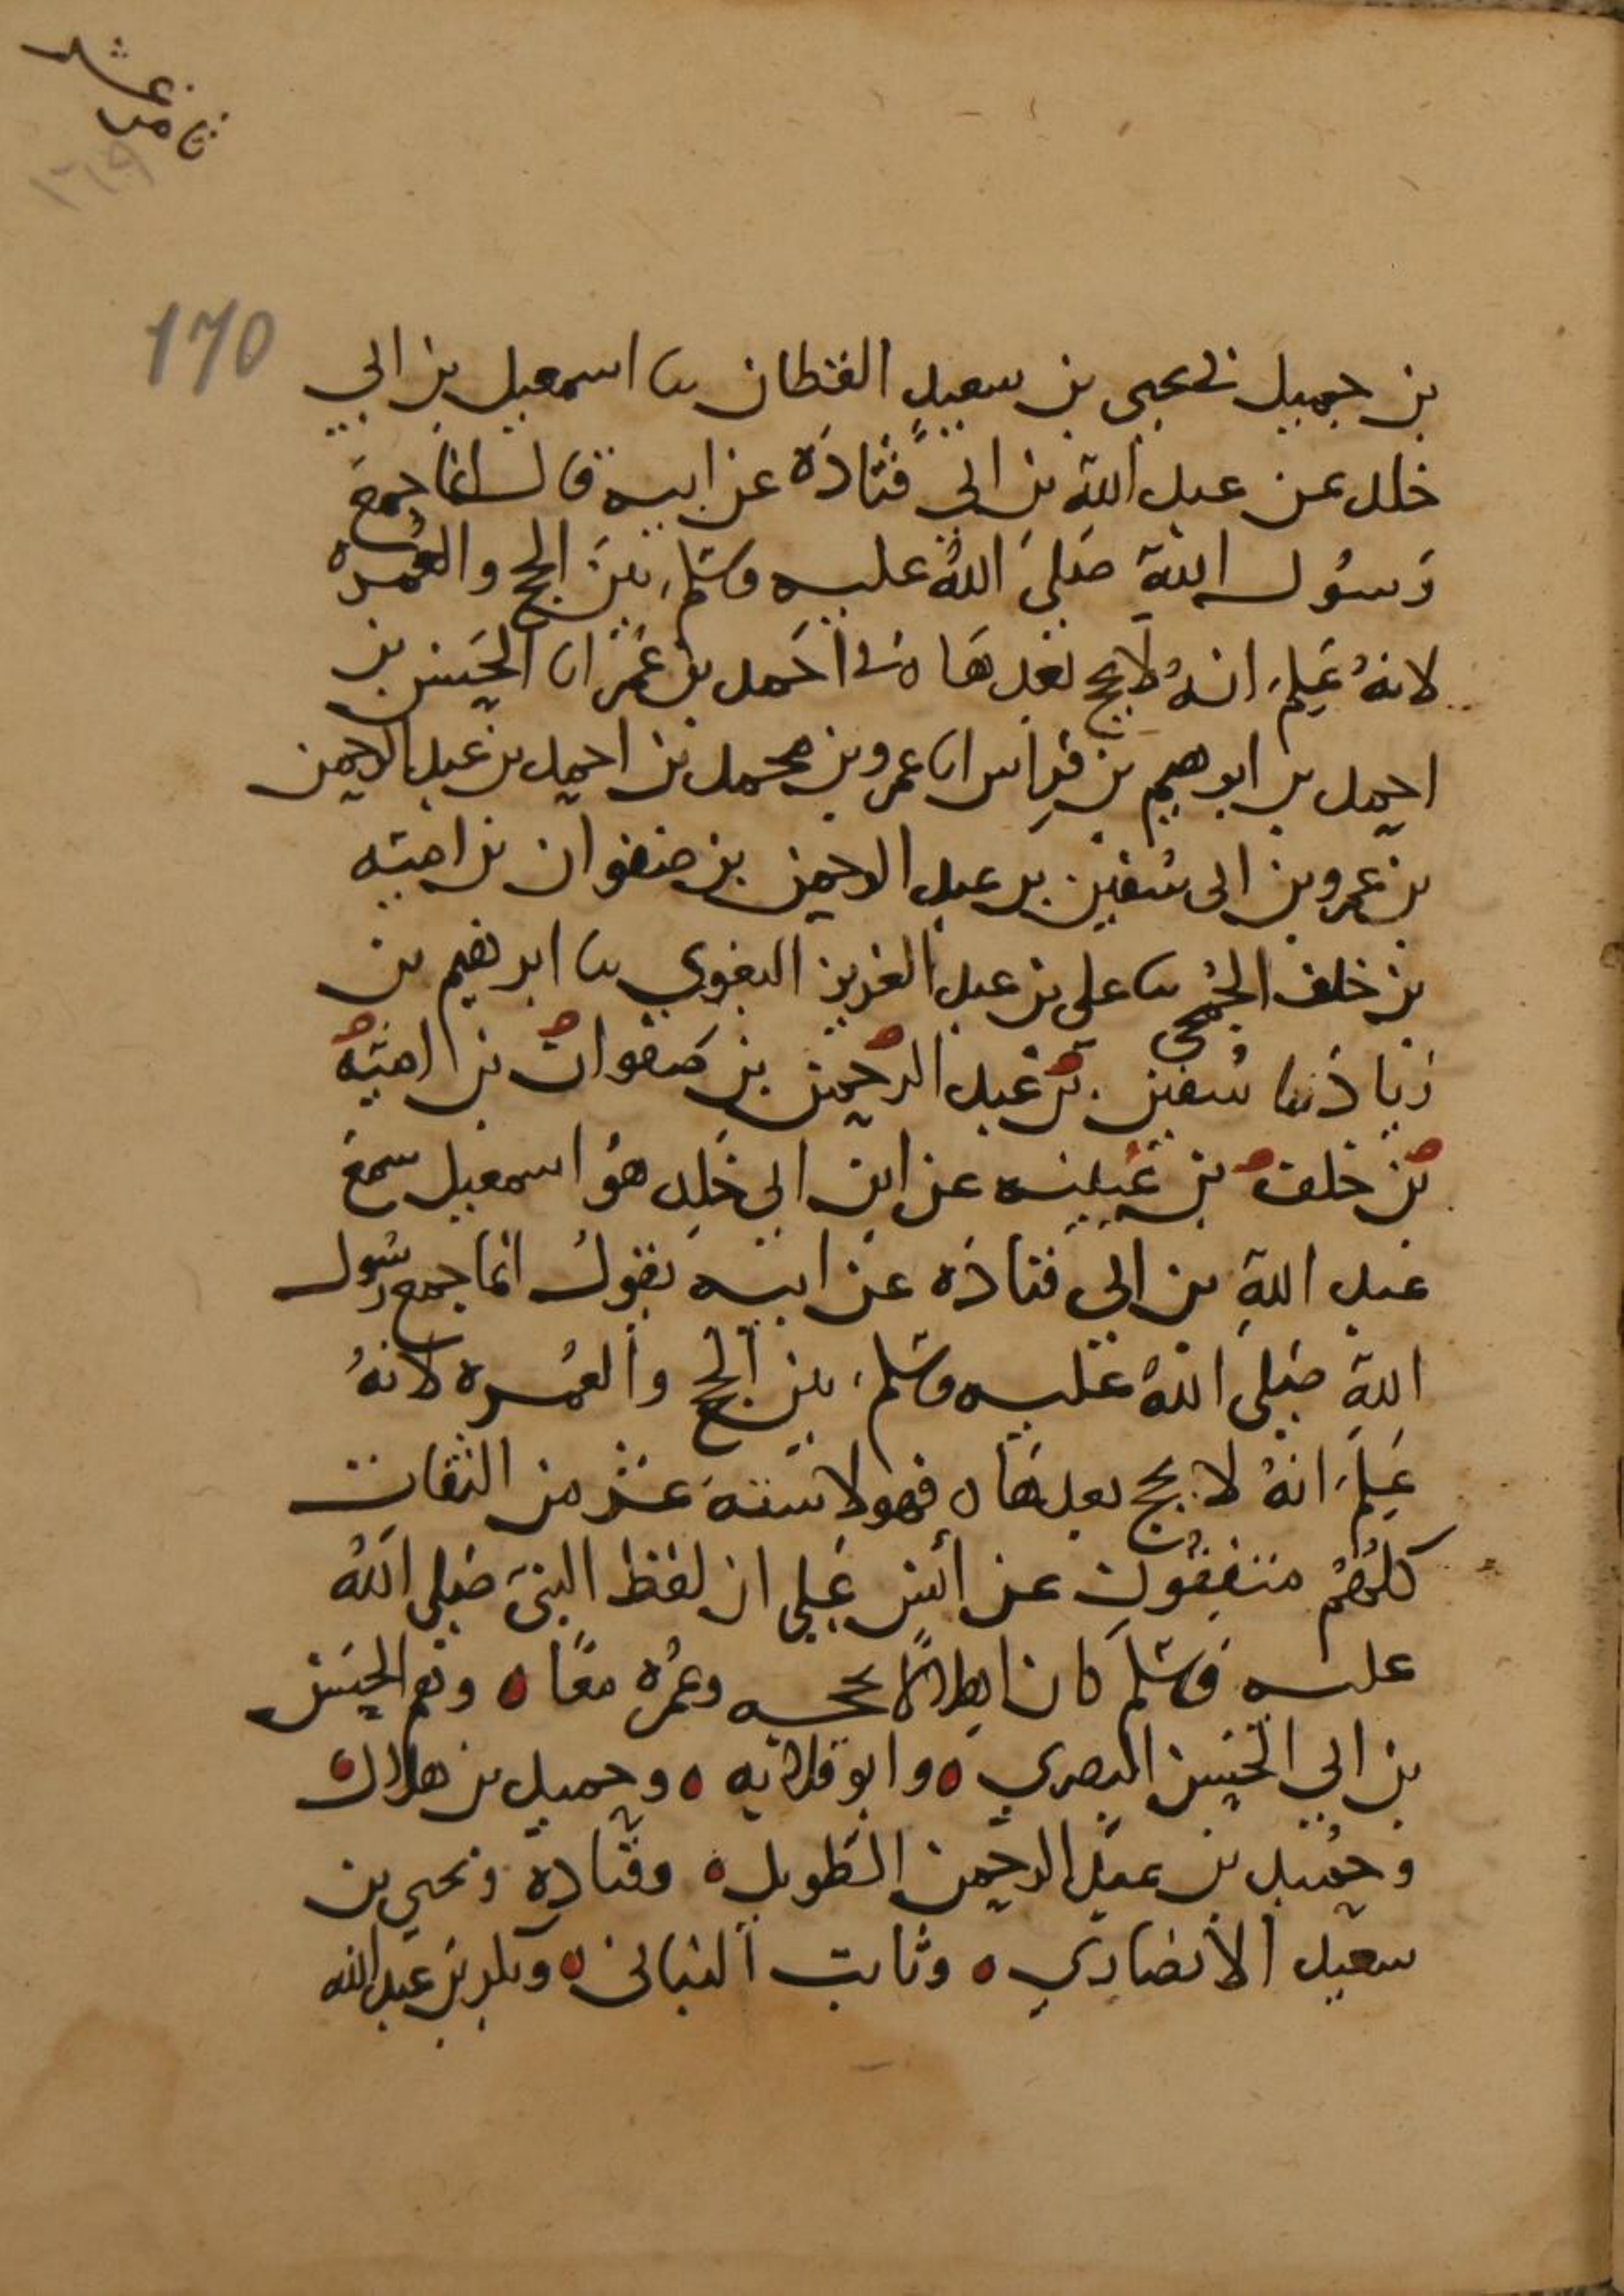 170
بن جميل نا يحيى بن سعيد القطان نا اسمعيل بن ابي
خلد عن عبد الله بن ابي قتادة عن ابيه قال انما جمع
رسول الله صلى الله عليه وسلم بين الحج والعمره
لانه علم انه لا يحج بعدها ه نا احمد بن عمر انا الحسين بن
احمد بن ابرهيم بن فراس انا عمرو بن محمد بن احمد بن عبد الرحمن
بن عمرو بن ابي سفين بن عبد الرحمن بن صفوان بن اميه
بن خلف الجمحي نا علي بن عبد العزيز البغوي نا ابرهيم بن
زياد نا سفين بن عبد الرحمن بن صفوان بن اميه
بن خلف بن عيينه عن ابن ابي خلد هو اسمعيل سمع
عبد الله بن ابي قتاده عن ابيه يقول انما جمع رسول
الله صلى الله عليه وسلم بين الحج والعمره لانه
علم انه لا يحج بعدها ه فهولا ستة عشر من الثقات
كلهم متفقون عن أنس على ان لفظ النبي صلى الله
عليه وسلم كان اهلالا بحجه وعمره معا ه وهم الحسن
بن ابي الحسن البصري ه وابو قلابه ه وحميد بن هلال
وحميد بن عبد الرحمن الطويل ه وقتادة ويحيى بن
سعيد الأنصاري ه وثابت البناني ه وبكر بن عبد الله